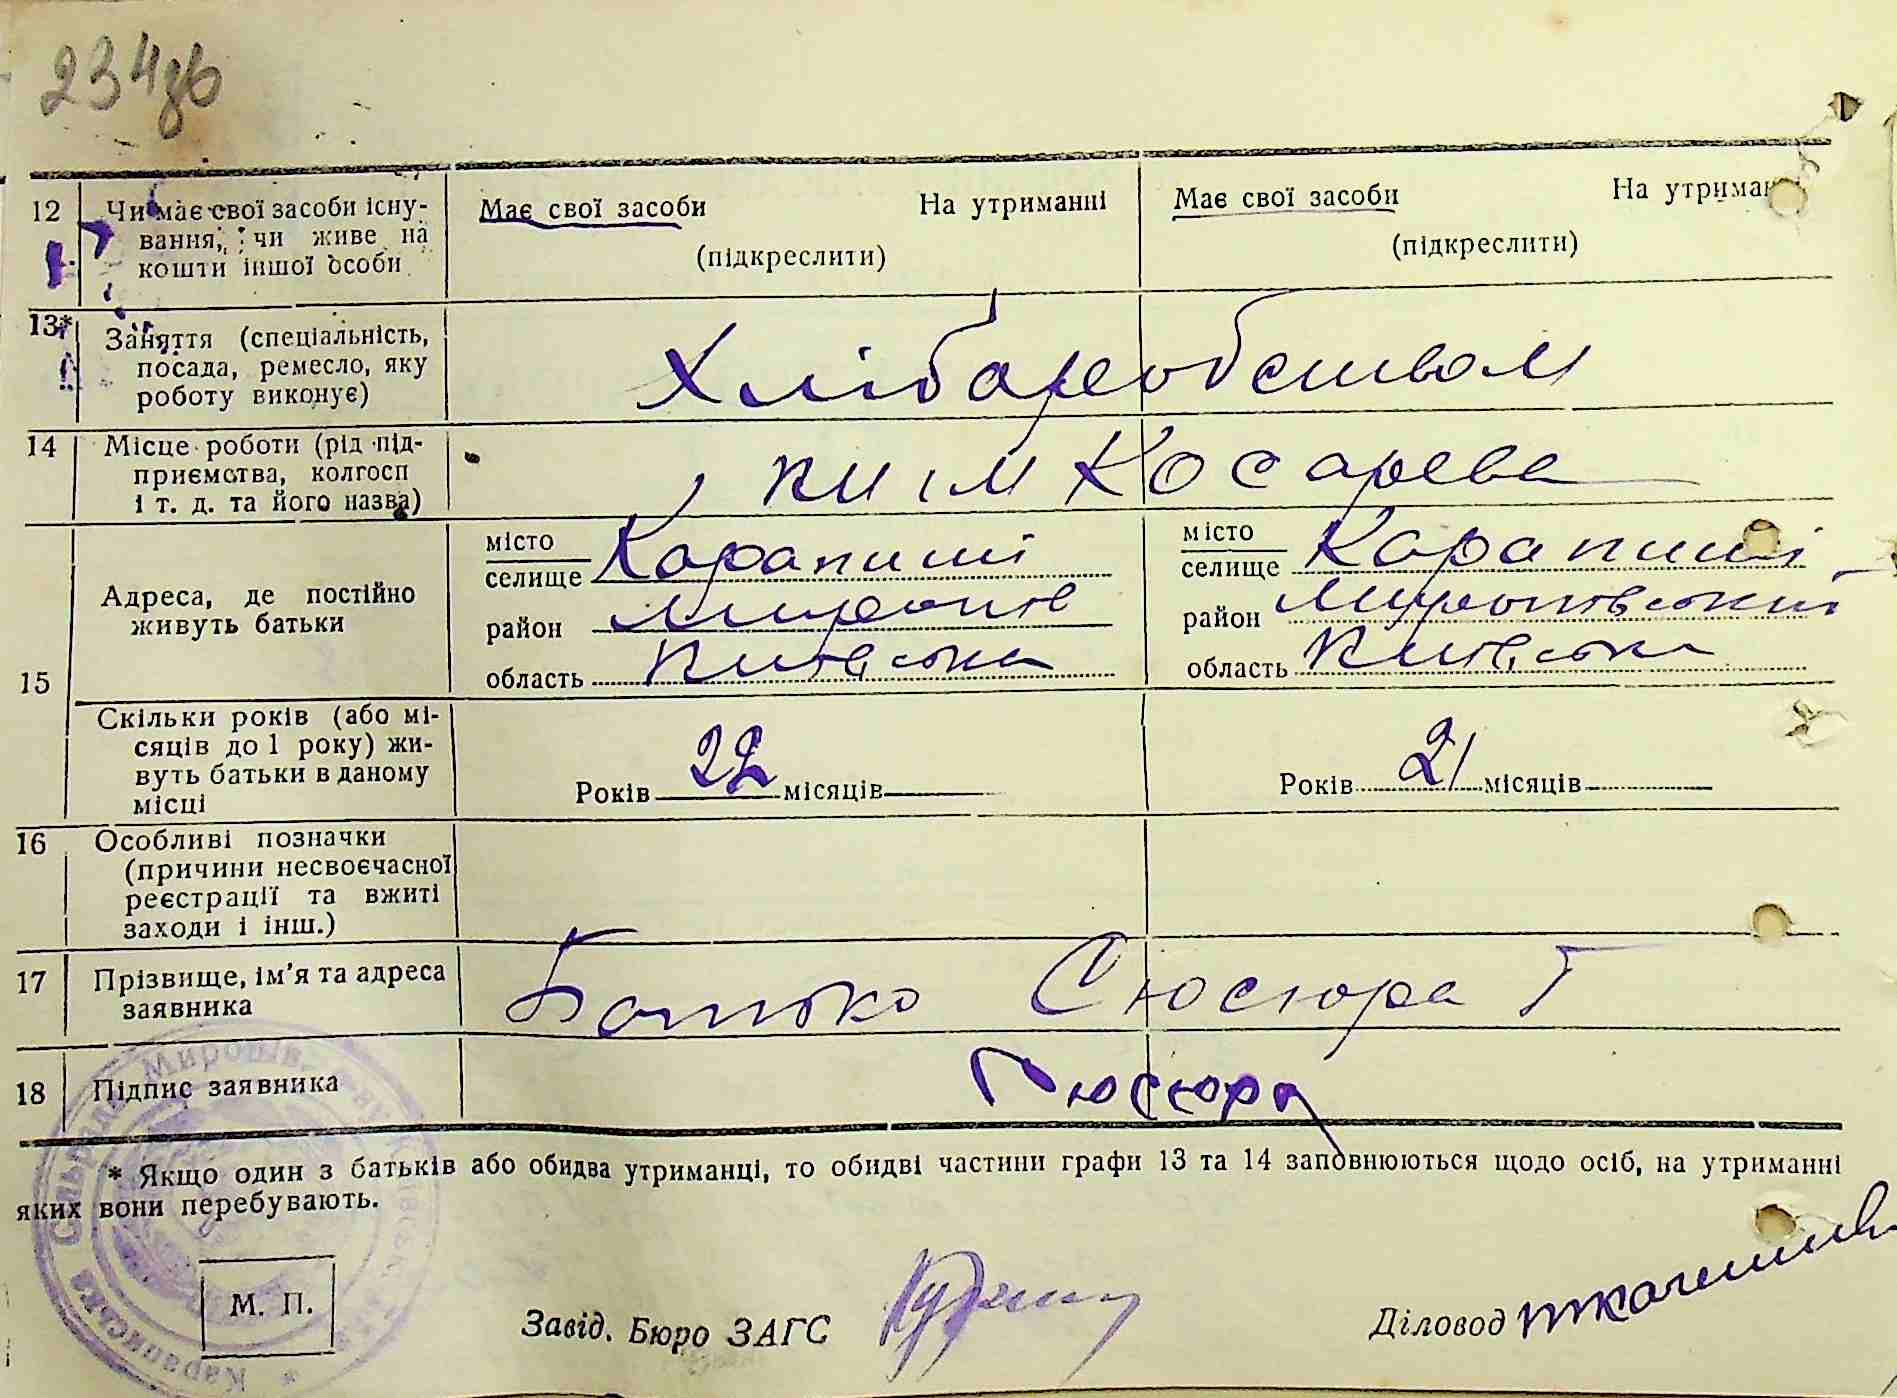 234зв
12 Чи має свої засоби існу-
вання, чи живе на
кошти іншої особи
Має свої засоби На утриманні
(підкреслити)
Має свої засоби На утриман
(підкреслити)
13* Заняття (спеціальність,
посада, ремесло, яку
роботу виконує)
Хлібаробством
14 Місце роботи (рід під-
приємства, колгосп
і т. д. та його назва)
ім Косарева
15 Адреса, де постійно
живуть батьки
місто
селище Карапиші
район Миронів
область Київська
місто
селище Карапиші
район Миронівський
область Київська
Скільки років (або мі-
сяців до 1 року) жи-
вуть батьки в даному
місці
Років 22 місяців
Років 21 місяців
16 Особливі позначки
(причини несвоєчасної
реєстрації та вжиті
заходи і інш.)
17 Прізвище, ім'я та адреса
заявника
Батько Сюсюра Г
18 Підпис заявника
Сюсюра
* Якщо один з батьків або обидва утриманці, то обидві частини графи 13 та 14 заповнюються щодо осіб, на утриманні
яких вони перебувають.
М. П.
Завід. Бюро ЗАГС
Діловод